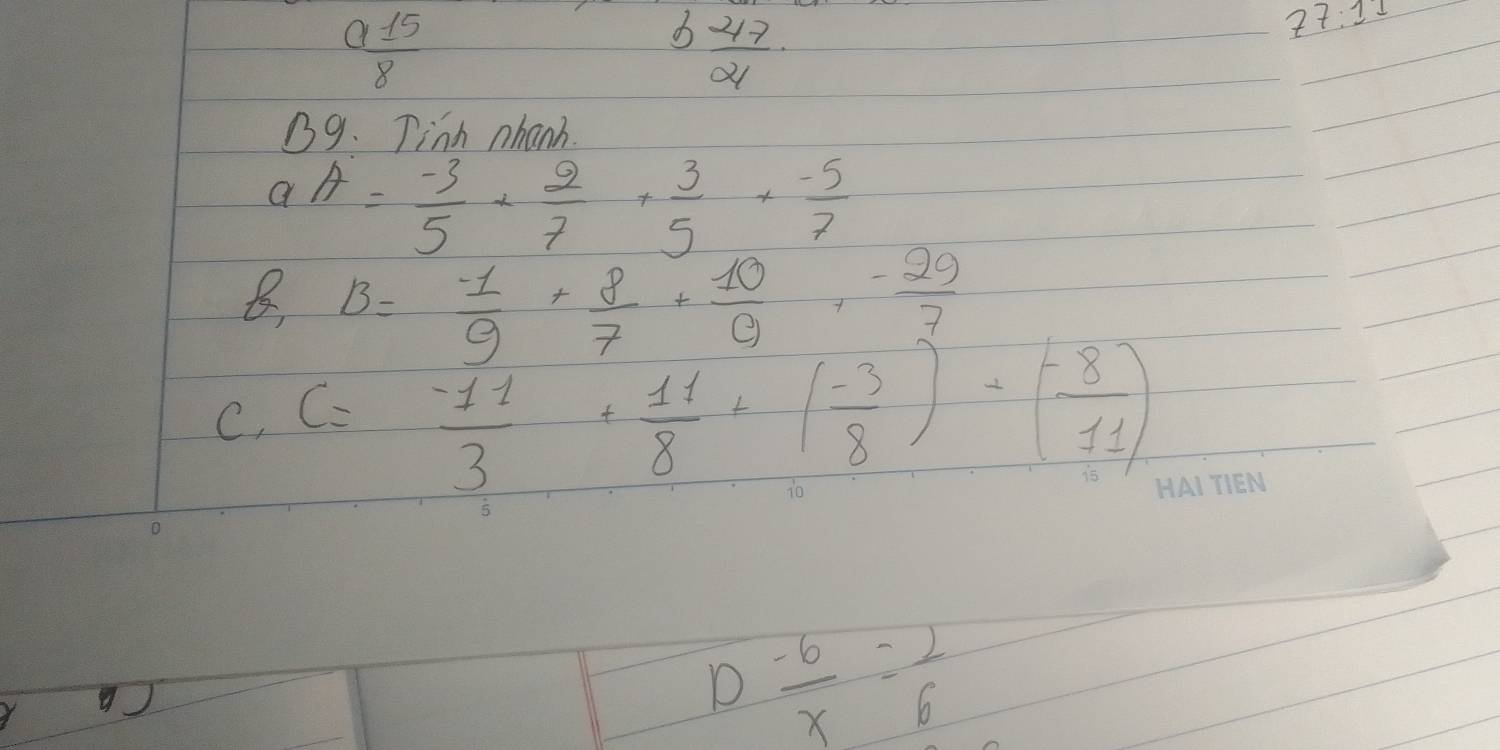 a 15/8 b 247/21
77:11
B9: Tính nhanh.
a A = -3/5 + 2/7 + 3/5 + -5/7
b, B = -1/9 + 8/7 + 10/9 + -29/7
C, C = -11/3 + 11/8 + (-3/8) + (-8/11)
0 5 10 15 HAI TIEN
D -6/x =